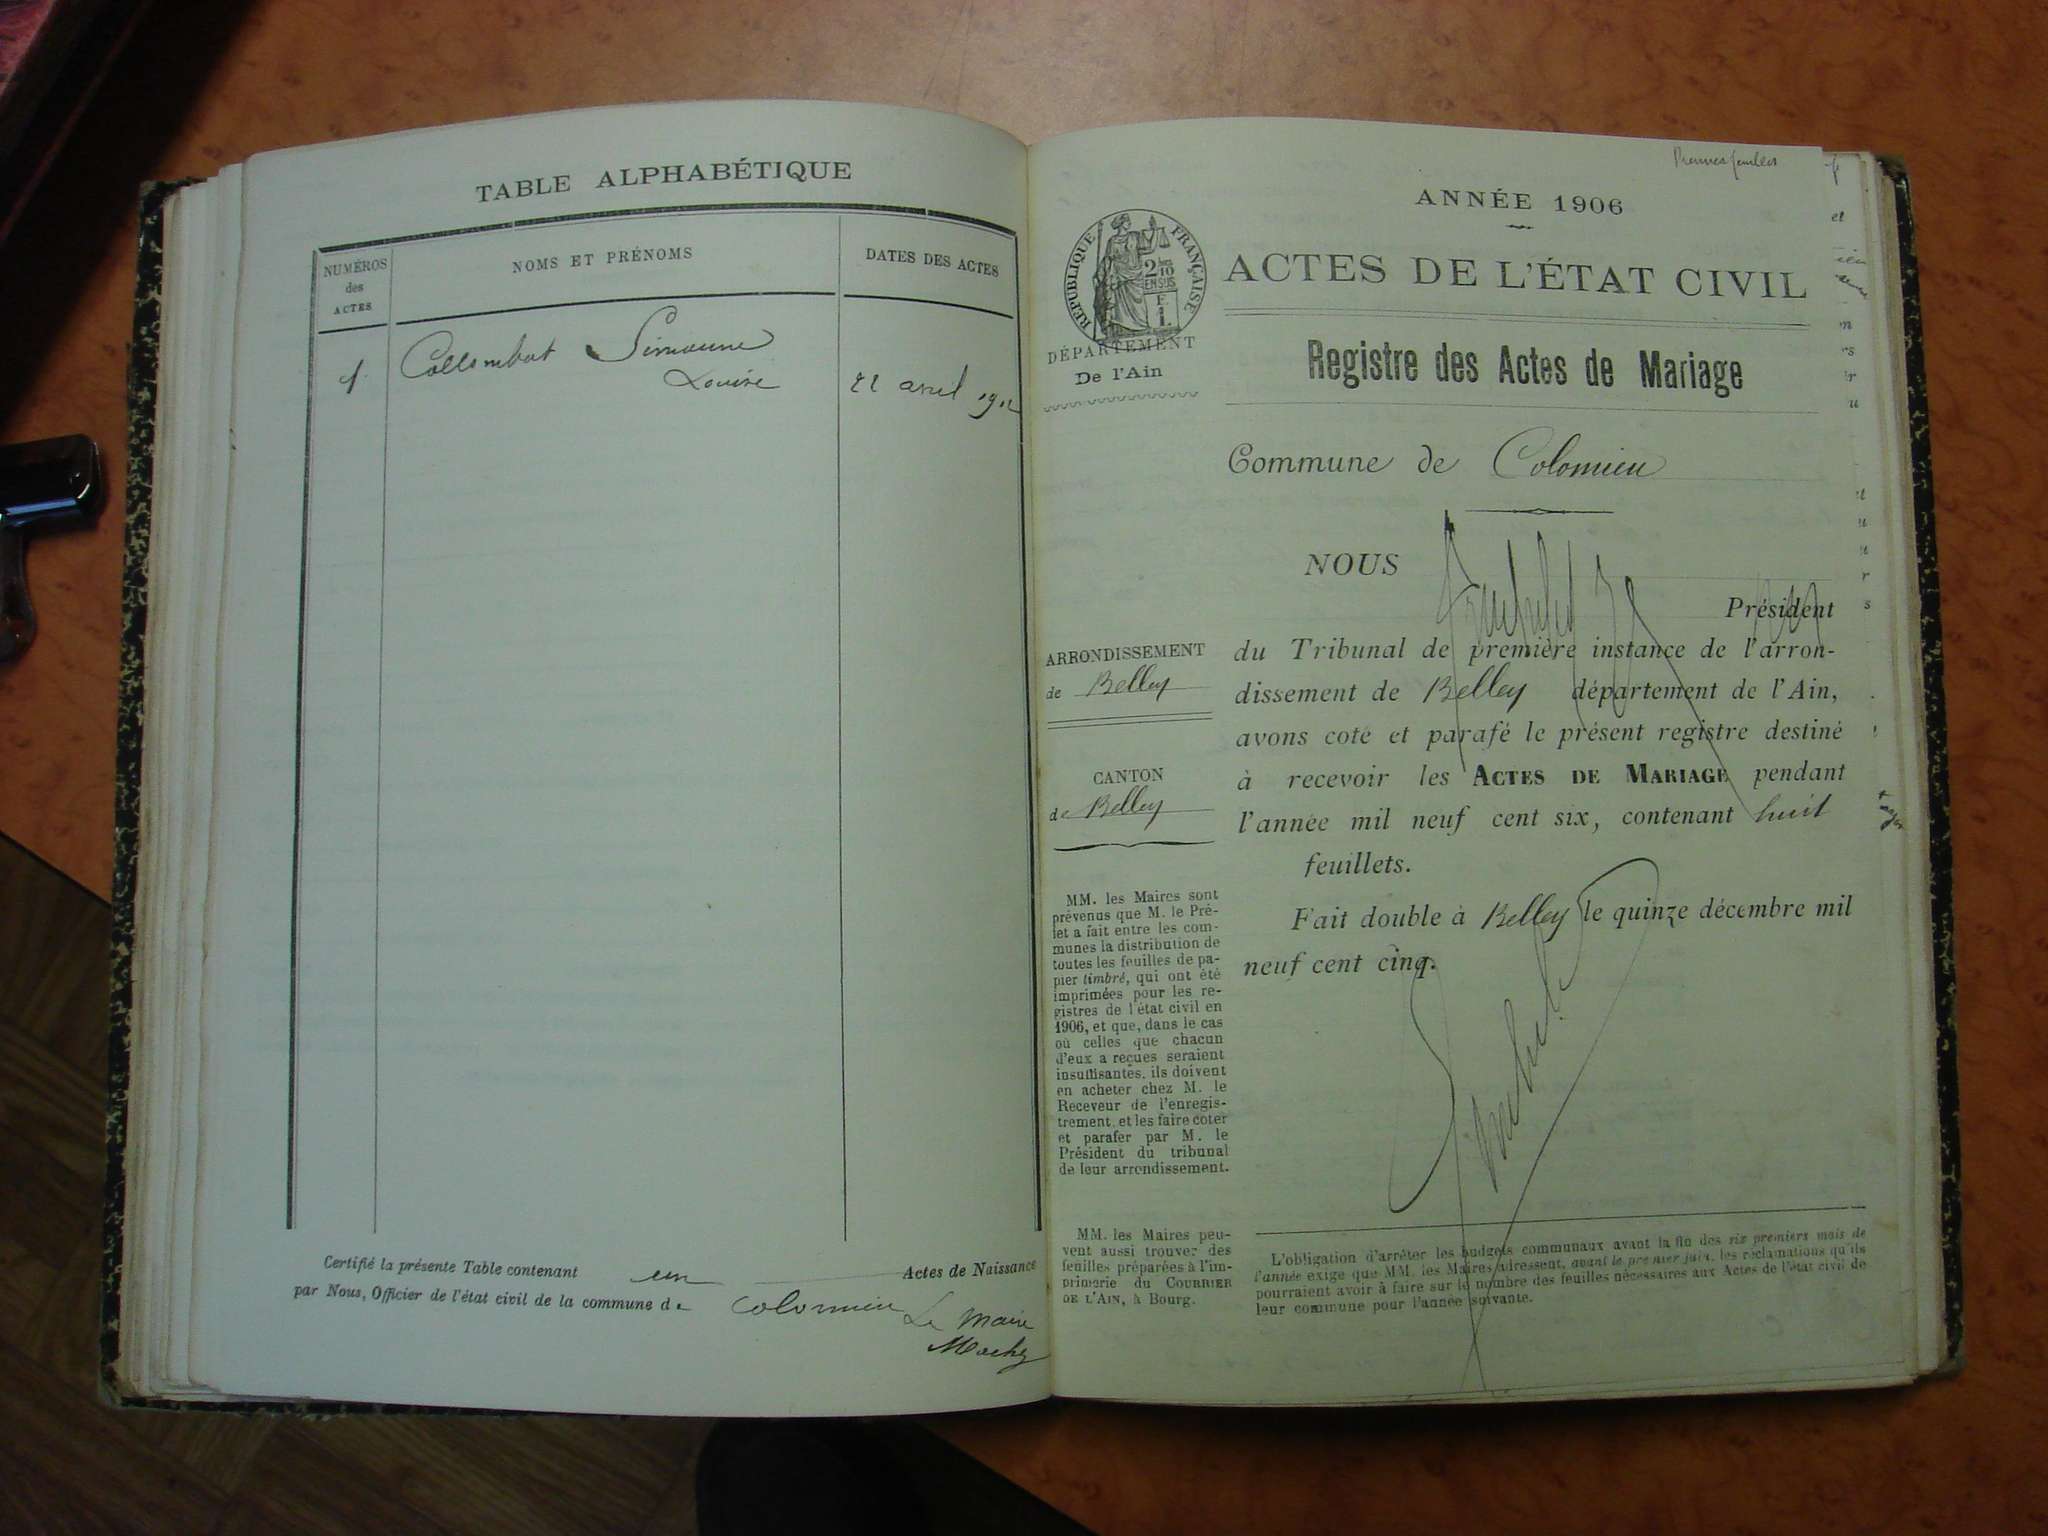 TABLE ALPHABÉTIQUE
NUMÉROS
des
ACTES
NOMS ET PRÉNOMS
DATES DES ACTES
1
Collombat Simonne
Louise
22 avril 1912
Certifié la présente Table contenant un Actes de Naissance
par Nous, Officier de l'état civil de la commune de Colomieu
Le Maire
ANNÉE 1906
RÉPUBLIQUE FRANÇAISE
2 10
EN SUS
DÉPARTEMENT
De l'Ain
ACTES DE L'ÉTAT CIVIL
Registre des Actes de Mariage
Commune de Colomieu
NOUS
Président
du Tribunal de première instance de l'arron-
dissement de Belley département de l'Ain,
avons coté et parafé le présent registre destiné
à recevoir les ACTES DE MARIAGE pendant
l'année mil neuf cent six, contenant huit
feuillets.
Fait double à Belley le quinze décembre mil
neuf cent cinq.
ARRONDISSEMENT
de Belley
CANTON
de Belley
MM. les Maires sont
prévenus que M. le Pré-
fet a fait entre les com-
munes la distribution de
toutes les feuilles de pa-
pier timbré, qui ont été
imprimées pour les re-
gistres de l'état civil en
1906, et que, dans le cas
où celles que chacun
d'eux a reçues seraient
insuffisantes, ils doivent
en acheter chez M. le
Receveur de l'enregis-
trement, et les faire coter
et parafer par M. le
Président du tribunal
de leur arrondissement.
MM. les Maires peu-
vent aussi trouver des
feuilles préparées à l'im-
primerie du COURRIER
DE L'AIN, à Bourg.
L'obligation d'arrêter les budgets communaux avant la fin des six premiers mois de
l'année exige que MM. les Maires adressent, avant le premier juin, les réclamations qu'ils
pourraient avoir à faire sur le nombre des feuilles nécessaires aux Actes de l'état civil de
leur commune pour l'année suivante.